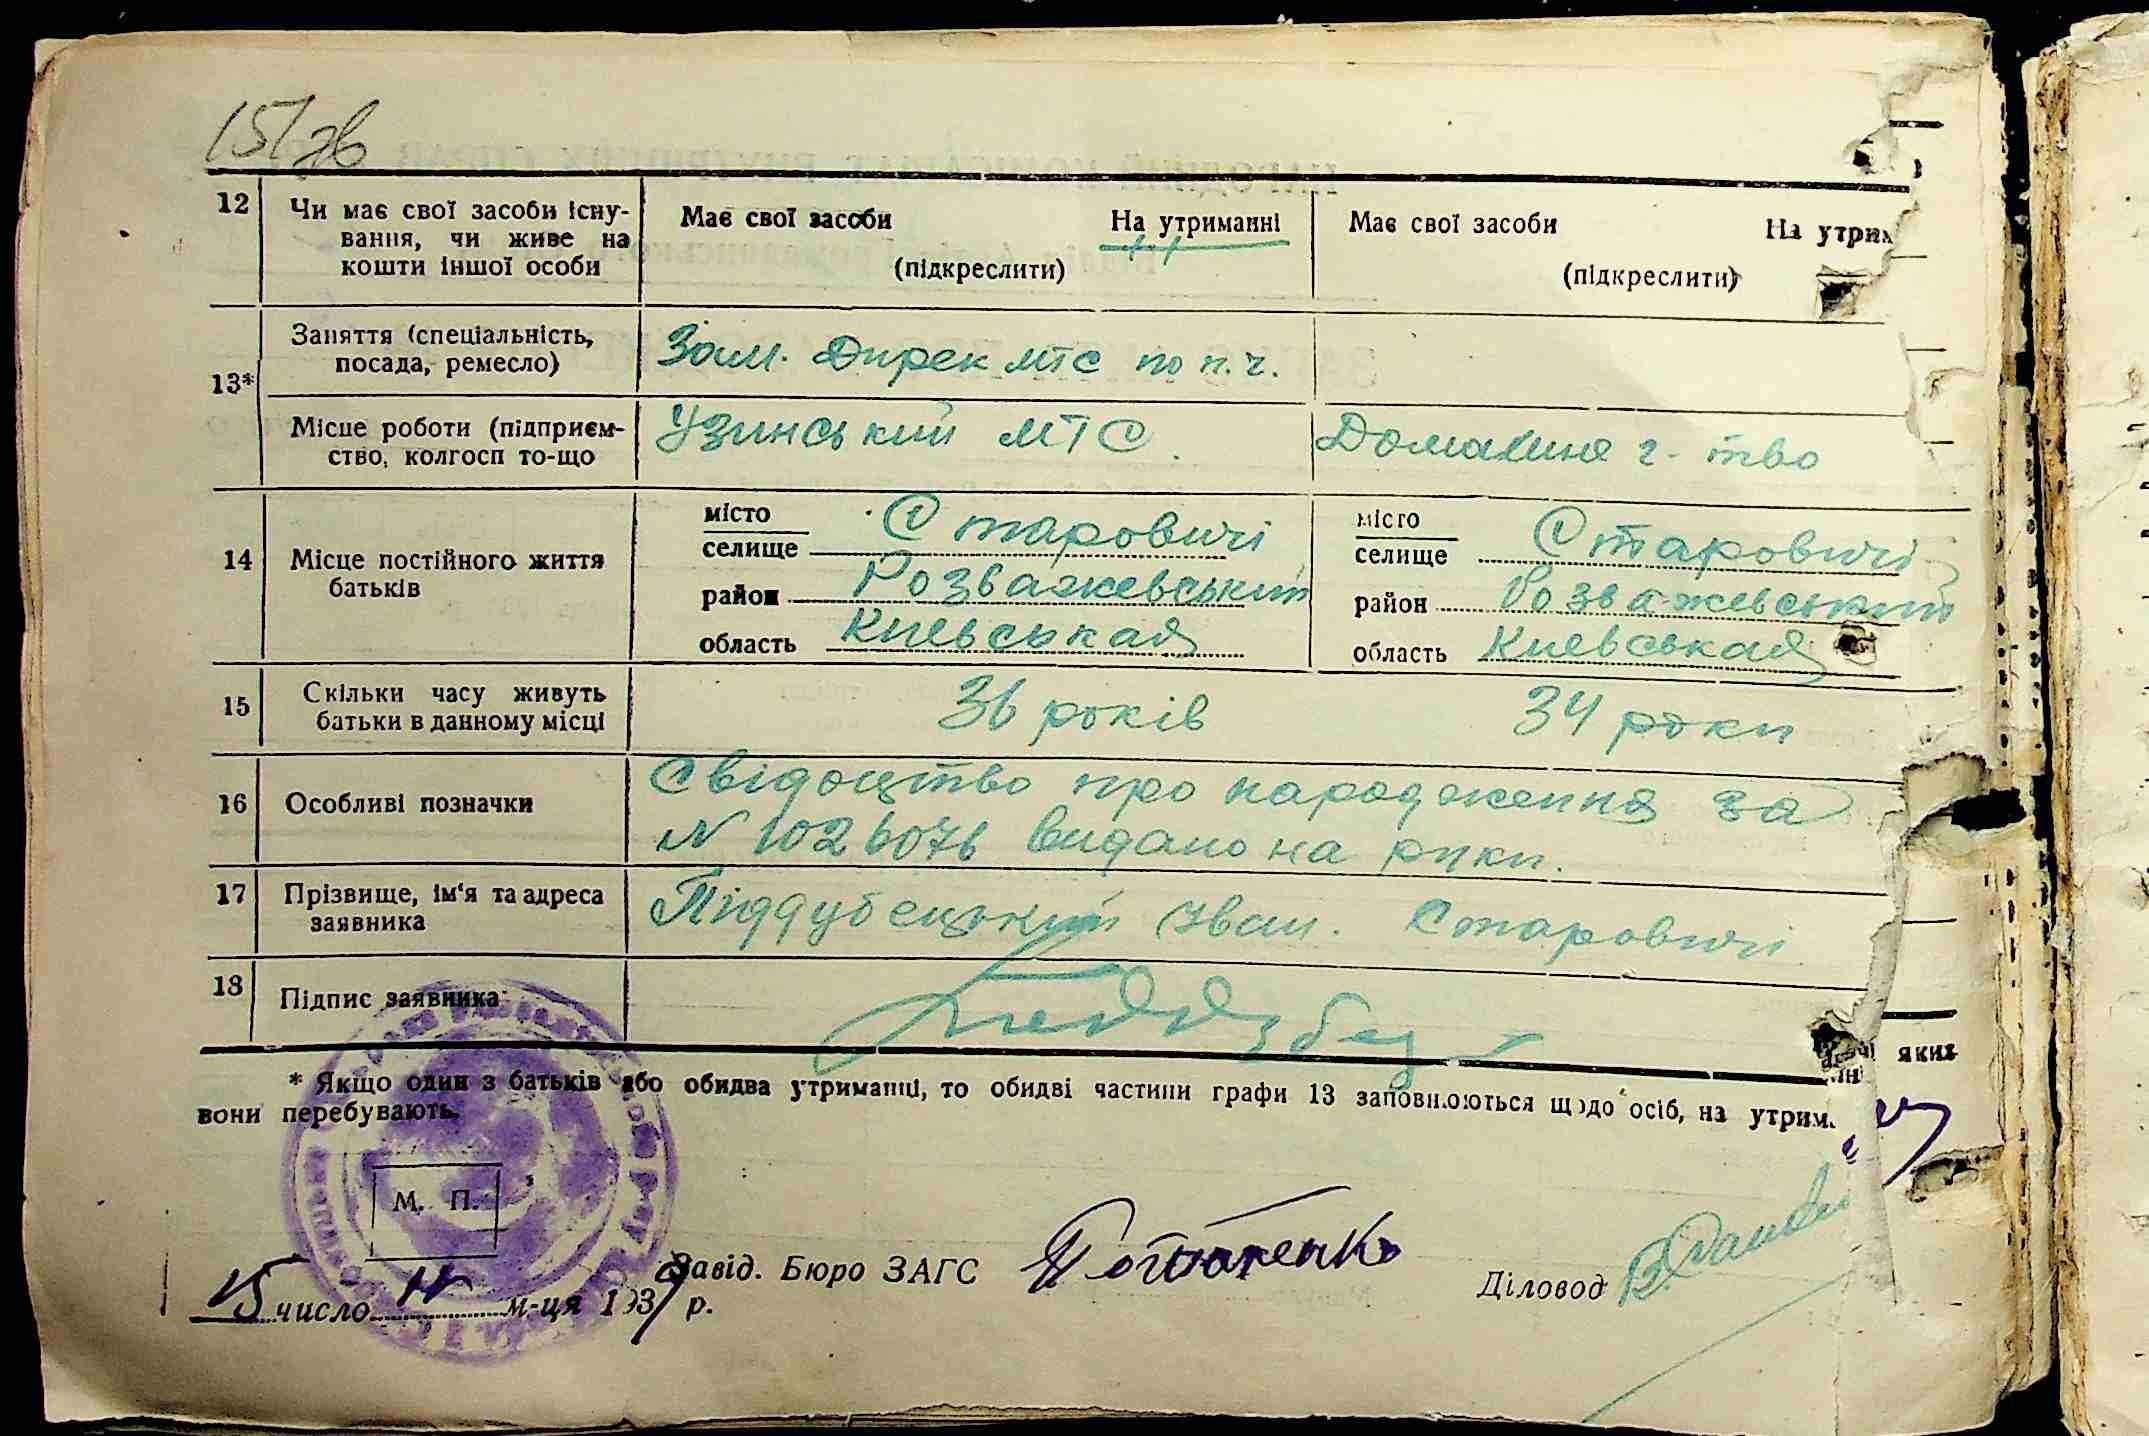 151зв
12 Чи має свої засоби існу- Має свої засоби На утриманні Має свої засоби На утрим
вання, чи живе на
кошти іншої особи (підкреслити) (підкреслити)
13* Заняття (спеціальність, посада, ремесло) Зам. Дирек МТС по п. ч.
Місце роботи (підприєм- Узинський МТС. Домашнє г-тво
ство, колгосп то-що
14 Місце постійного життя батьків
місто Старовичі місто Старовичі
селище селище
район Розважевський район Розважевський
область Киевськая область Киевськая
15 Скільки часу живуть 36 років 34 роки
батьки в данному місці
16 Особливі позначки Свідоцтво про народження за
N 1026076 видано на руки.
17 Прізвище, ім'я та адреса Піддубецький Іван. Старовичі
заявника
18 Підпис заявника
* Якщо один з батьків або обидва утриманці, то обидві частини графи 13 заповнюються щодо осіб, на утрим яких
вони перебувають.
М. П.
15 число 11 м-ця 1939 р. Завід. Бюро ЗАГС Діловод